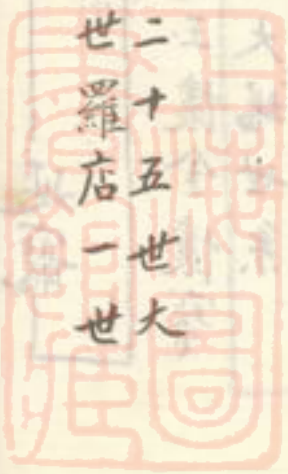 二十五世大
世羅店一世